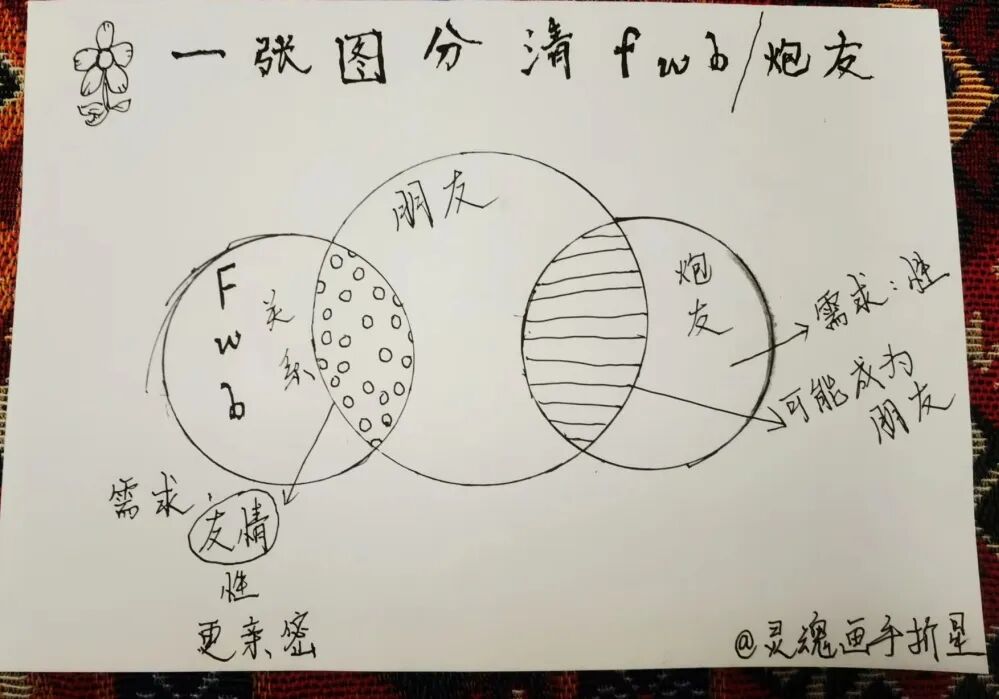 一张图分清fwb/炮友
朋友
Fwb
关系
炮友
需求：性
可能成为
朋友
需求：
友情
性
更亲密
@灵魂画手折星